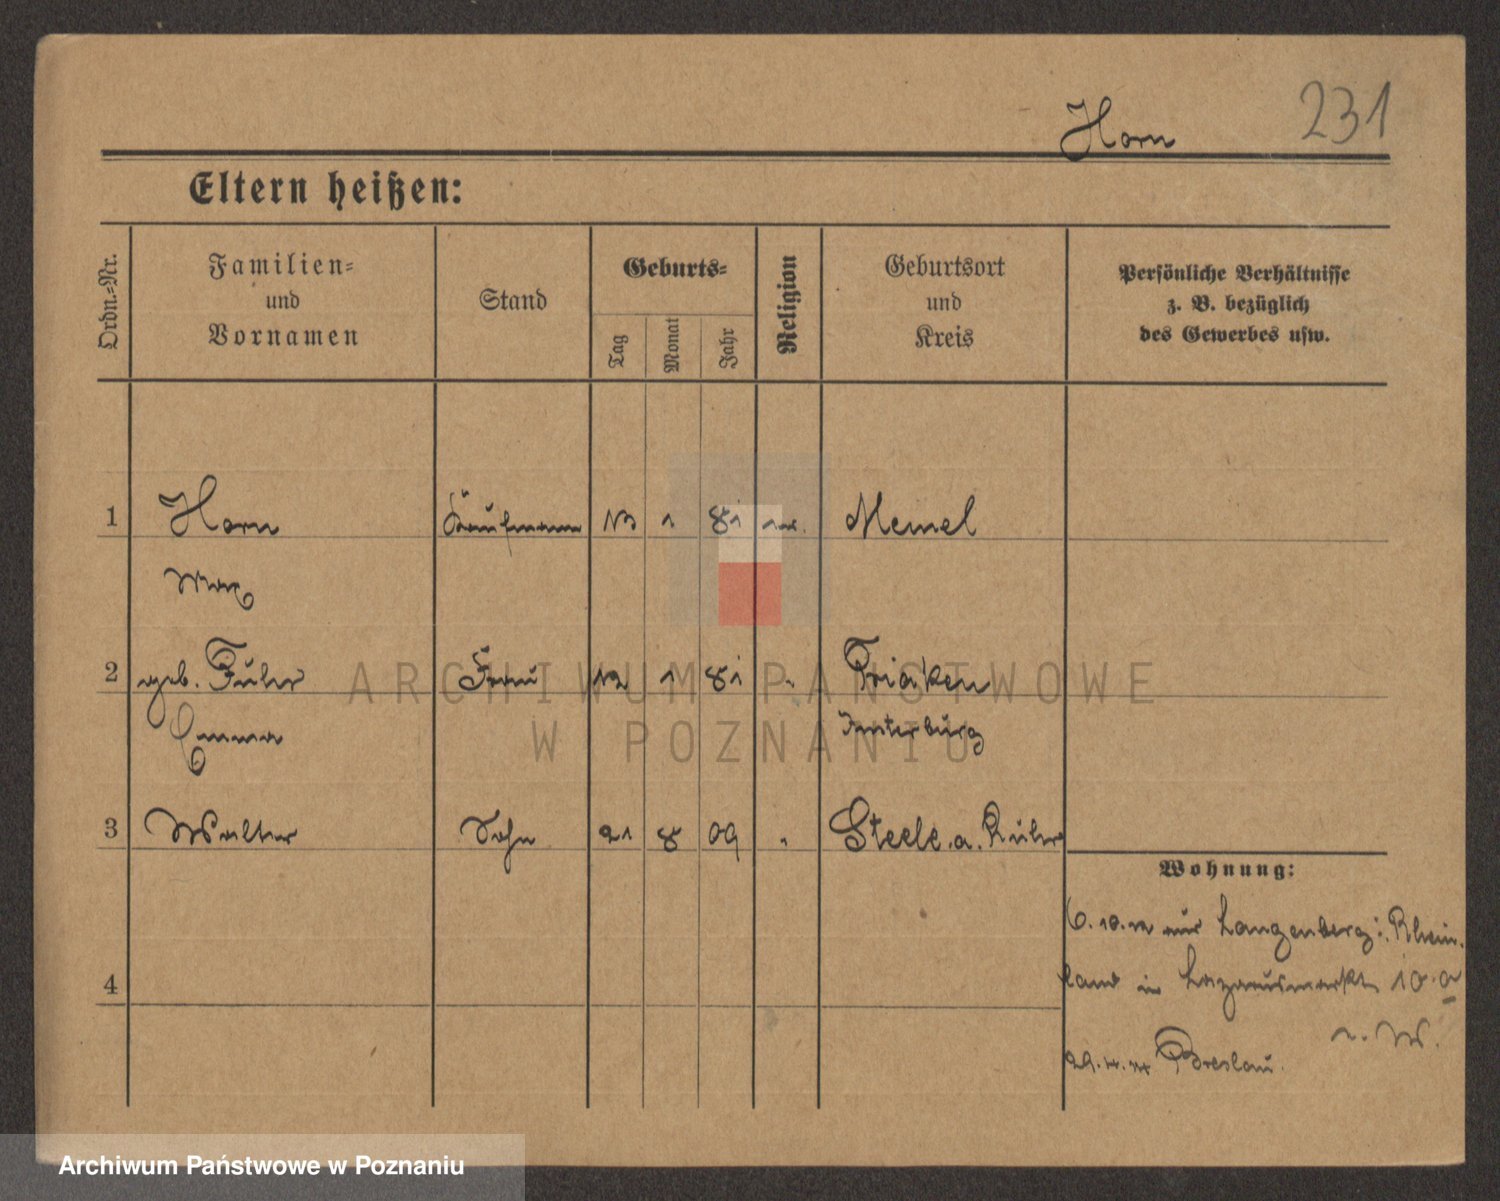 231
Horn
Eltern heißen:
Ordn.-Nr.
Familien-
und
Vornamen
Stand
Geburts-
Tag
Monat
Jahr
Religion
Geburtsort
und
Kreis
Persönliche Verhältnisse
z. B. bezüglich
des Gewerbes usw.
1 Horn Kaufmann 13 1 81 Memel
Max
2 geb. Frau 12 1 81 "
Emma Insterburg
3 Walter Sohn 21 8 09 " Steele a. Ruhr
4
Wohnung:
6. 10. 12 aus Langenberg i. Rhein-
land in Lazarusmarkt 10 a
Breslau.
ARCHIWUM PAŃSTWOWE
W POZNANIU
Archiwum Państwowe w Poznaniu